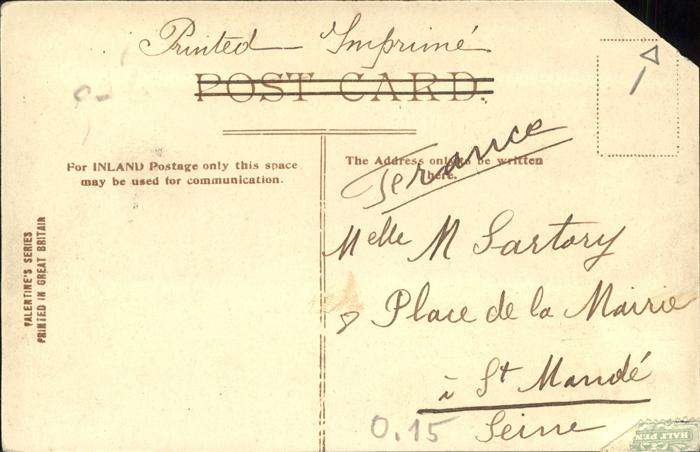 Printed — Imprimé
POST CARD.
For INLAND Postage only this space
may be used for communication.
The Address only to be written
here.
France
VALENTINE'S SERIES
PRINTED IN GREAT BRITAIN
Melle M Sartory
Place de la Mairie
à St Mandé
Seine
0.15
HALF PEN